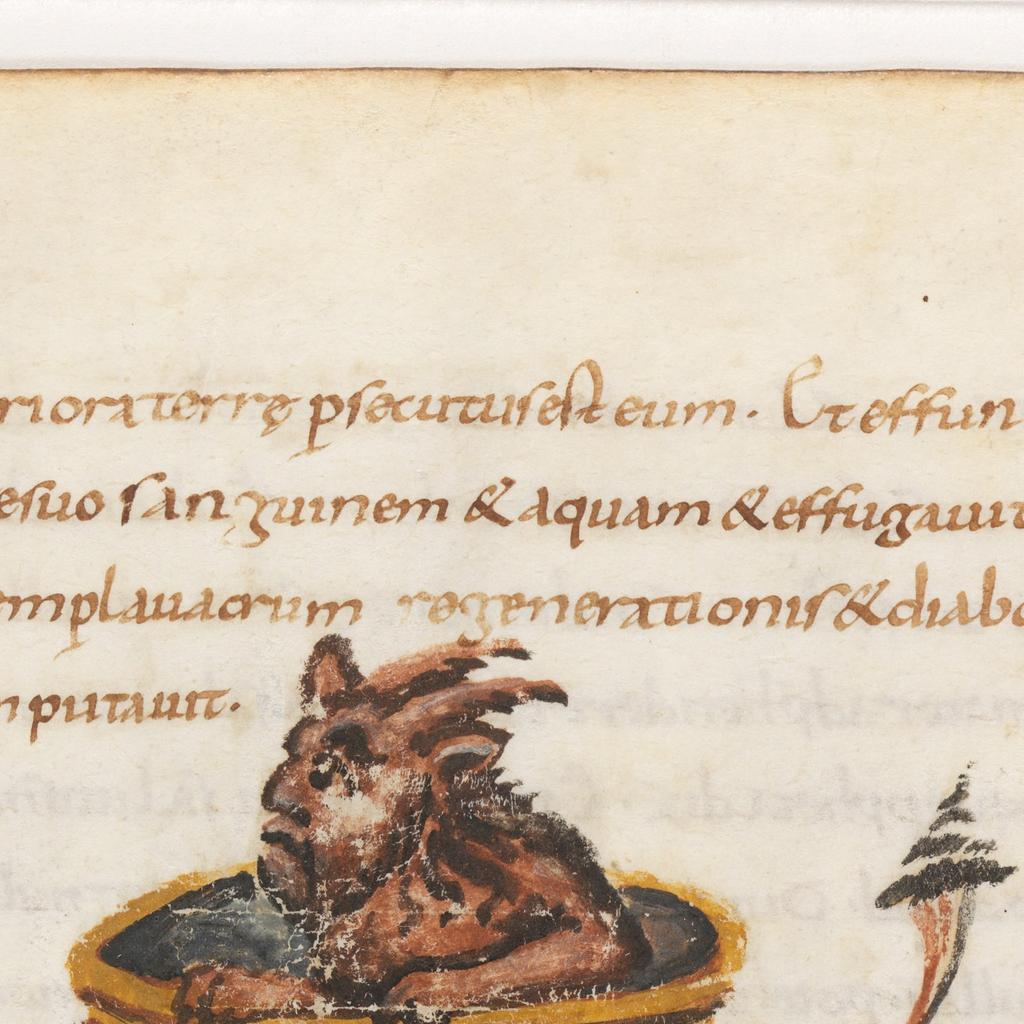 riora terrę psecutus est eum. Et effun
esuo sanguinem & aquam & effugauit
mplauacrum regenerationis & diabo
putauit.